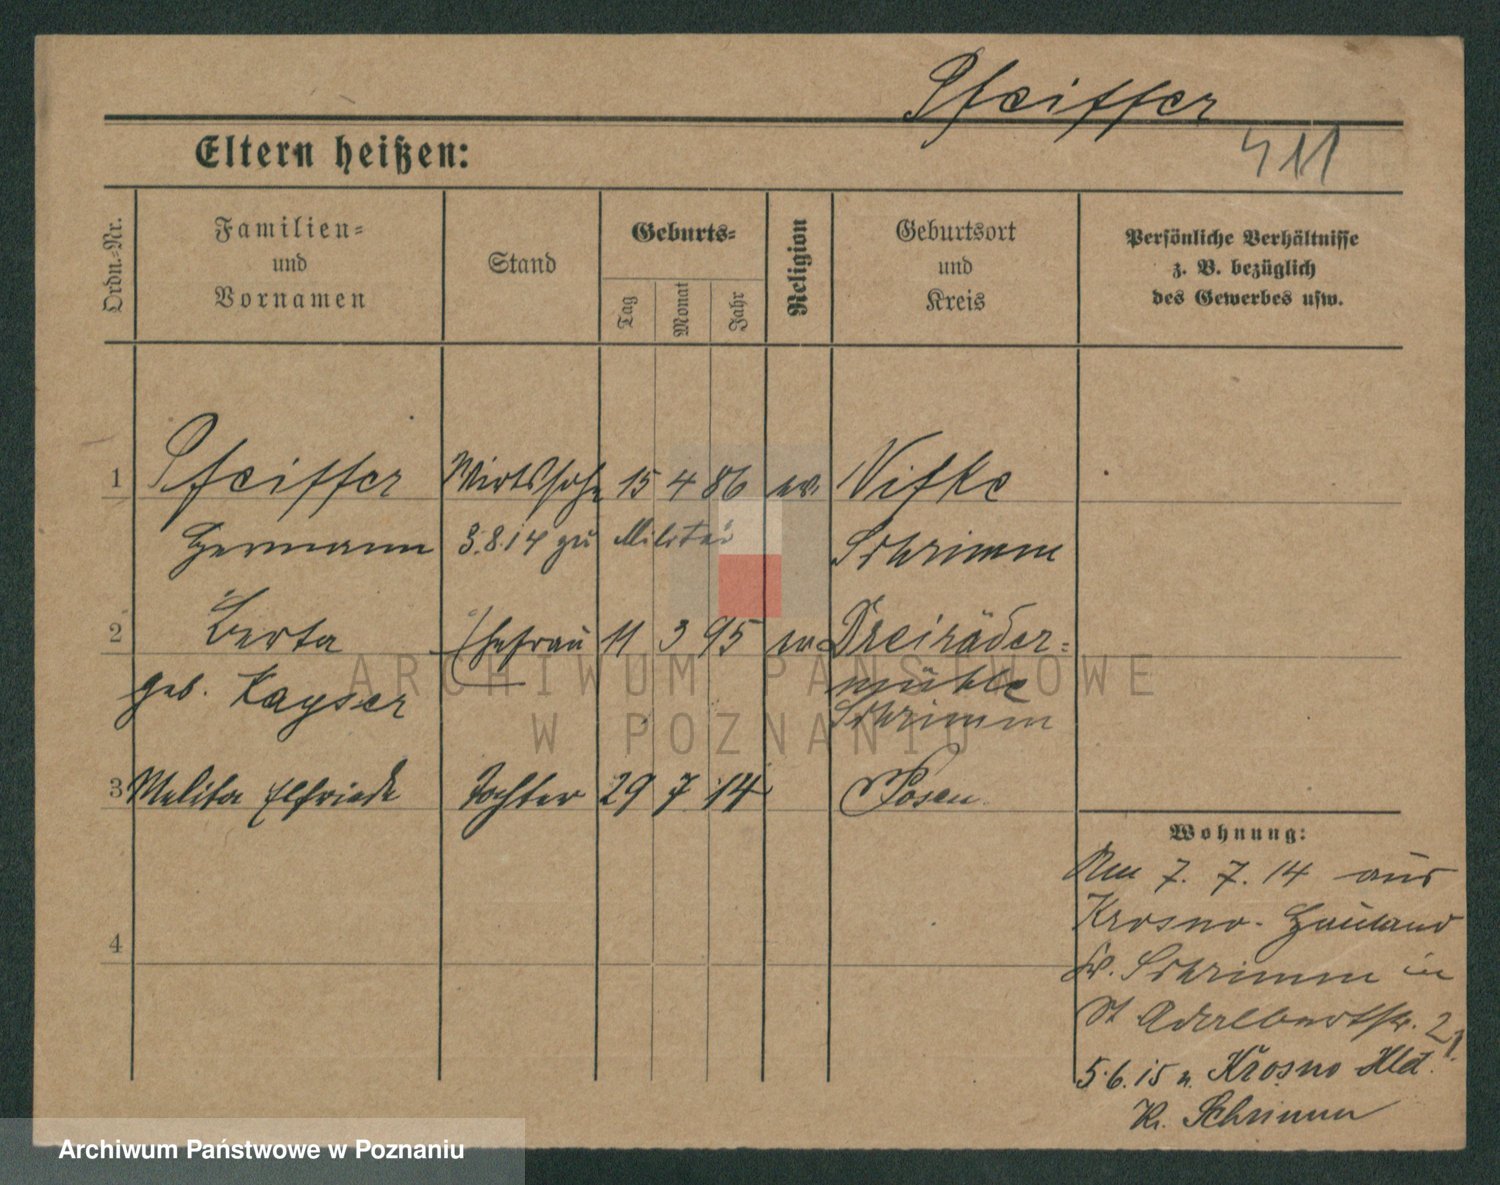 Pfeiffer
411
Eltern heißen:
Ordn.-Nr.
Familien-
und
Vornamen
Stand
Geburts-
Tag
Monat
Jahr
Religion
Geburtsort
und
Kreis
Persönliche Verhältnisse
z. B. bezüglich
des Gewerbes usw.
1 Pfeiffer Wirtssohn 15 4 86 ev. Nifke
Hermann 3.8.14 zu Militär Schrimm
2 Berta Ehefrau 11 3 95 ev. Dreiräder-
mühle
geb. Kayser Schrimm
3 Melita Elfriede Tochter 29 7 14 Posen
4
Wohnung:
Am 7. 7. 14 aus
Krosno-Hauland
Kr. Schrimm in
St Adalbertstr. 21
5.6.15 n. Krosno Hld.
Kr. Schrimm
ARCHIWUM PAŃSTWOWE
W POZNANIU
Archiwum Państwowe w Poznaniu